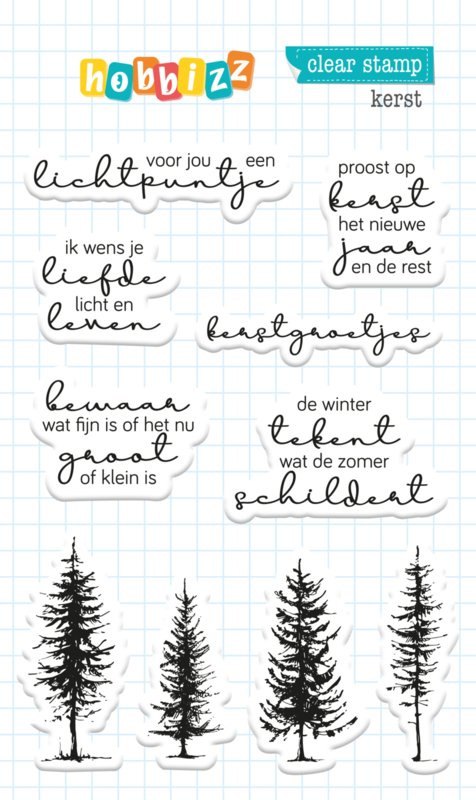 hobbizz
clear stamp
kerst
voor jou een
lichtpuntje
proost op
kerst
het nieuwe
jaar
en de rest
ik wens je
liefde
licht en
leven
kerstgroetjes
bewaar
wat fijn is of het nu
groot
of klein is
de winter
tekent
wat de zomer
schildert